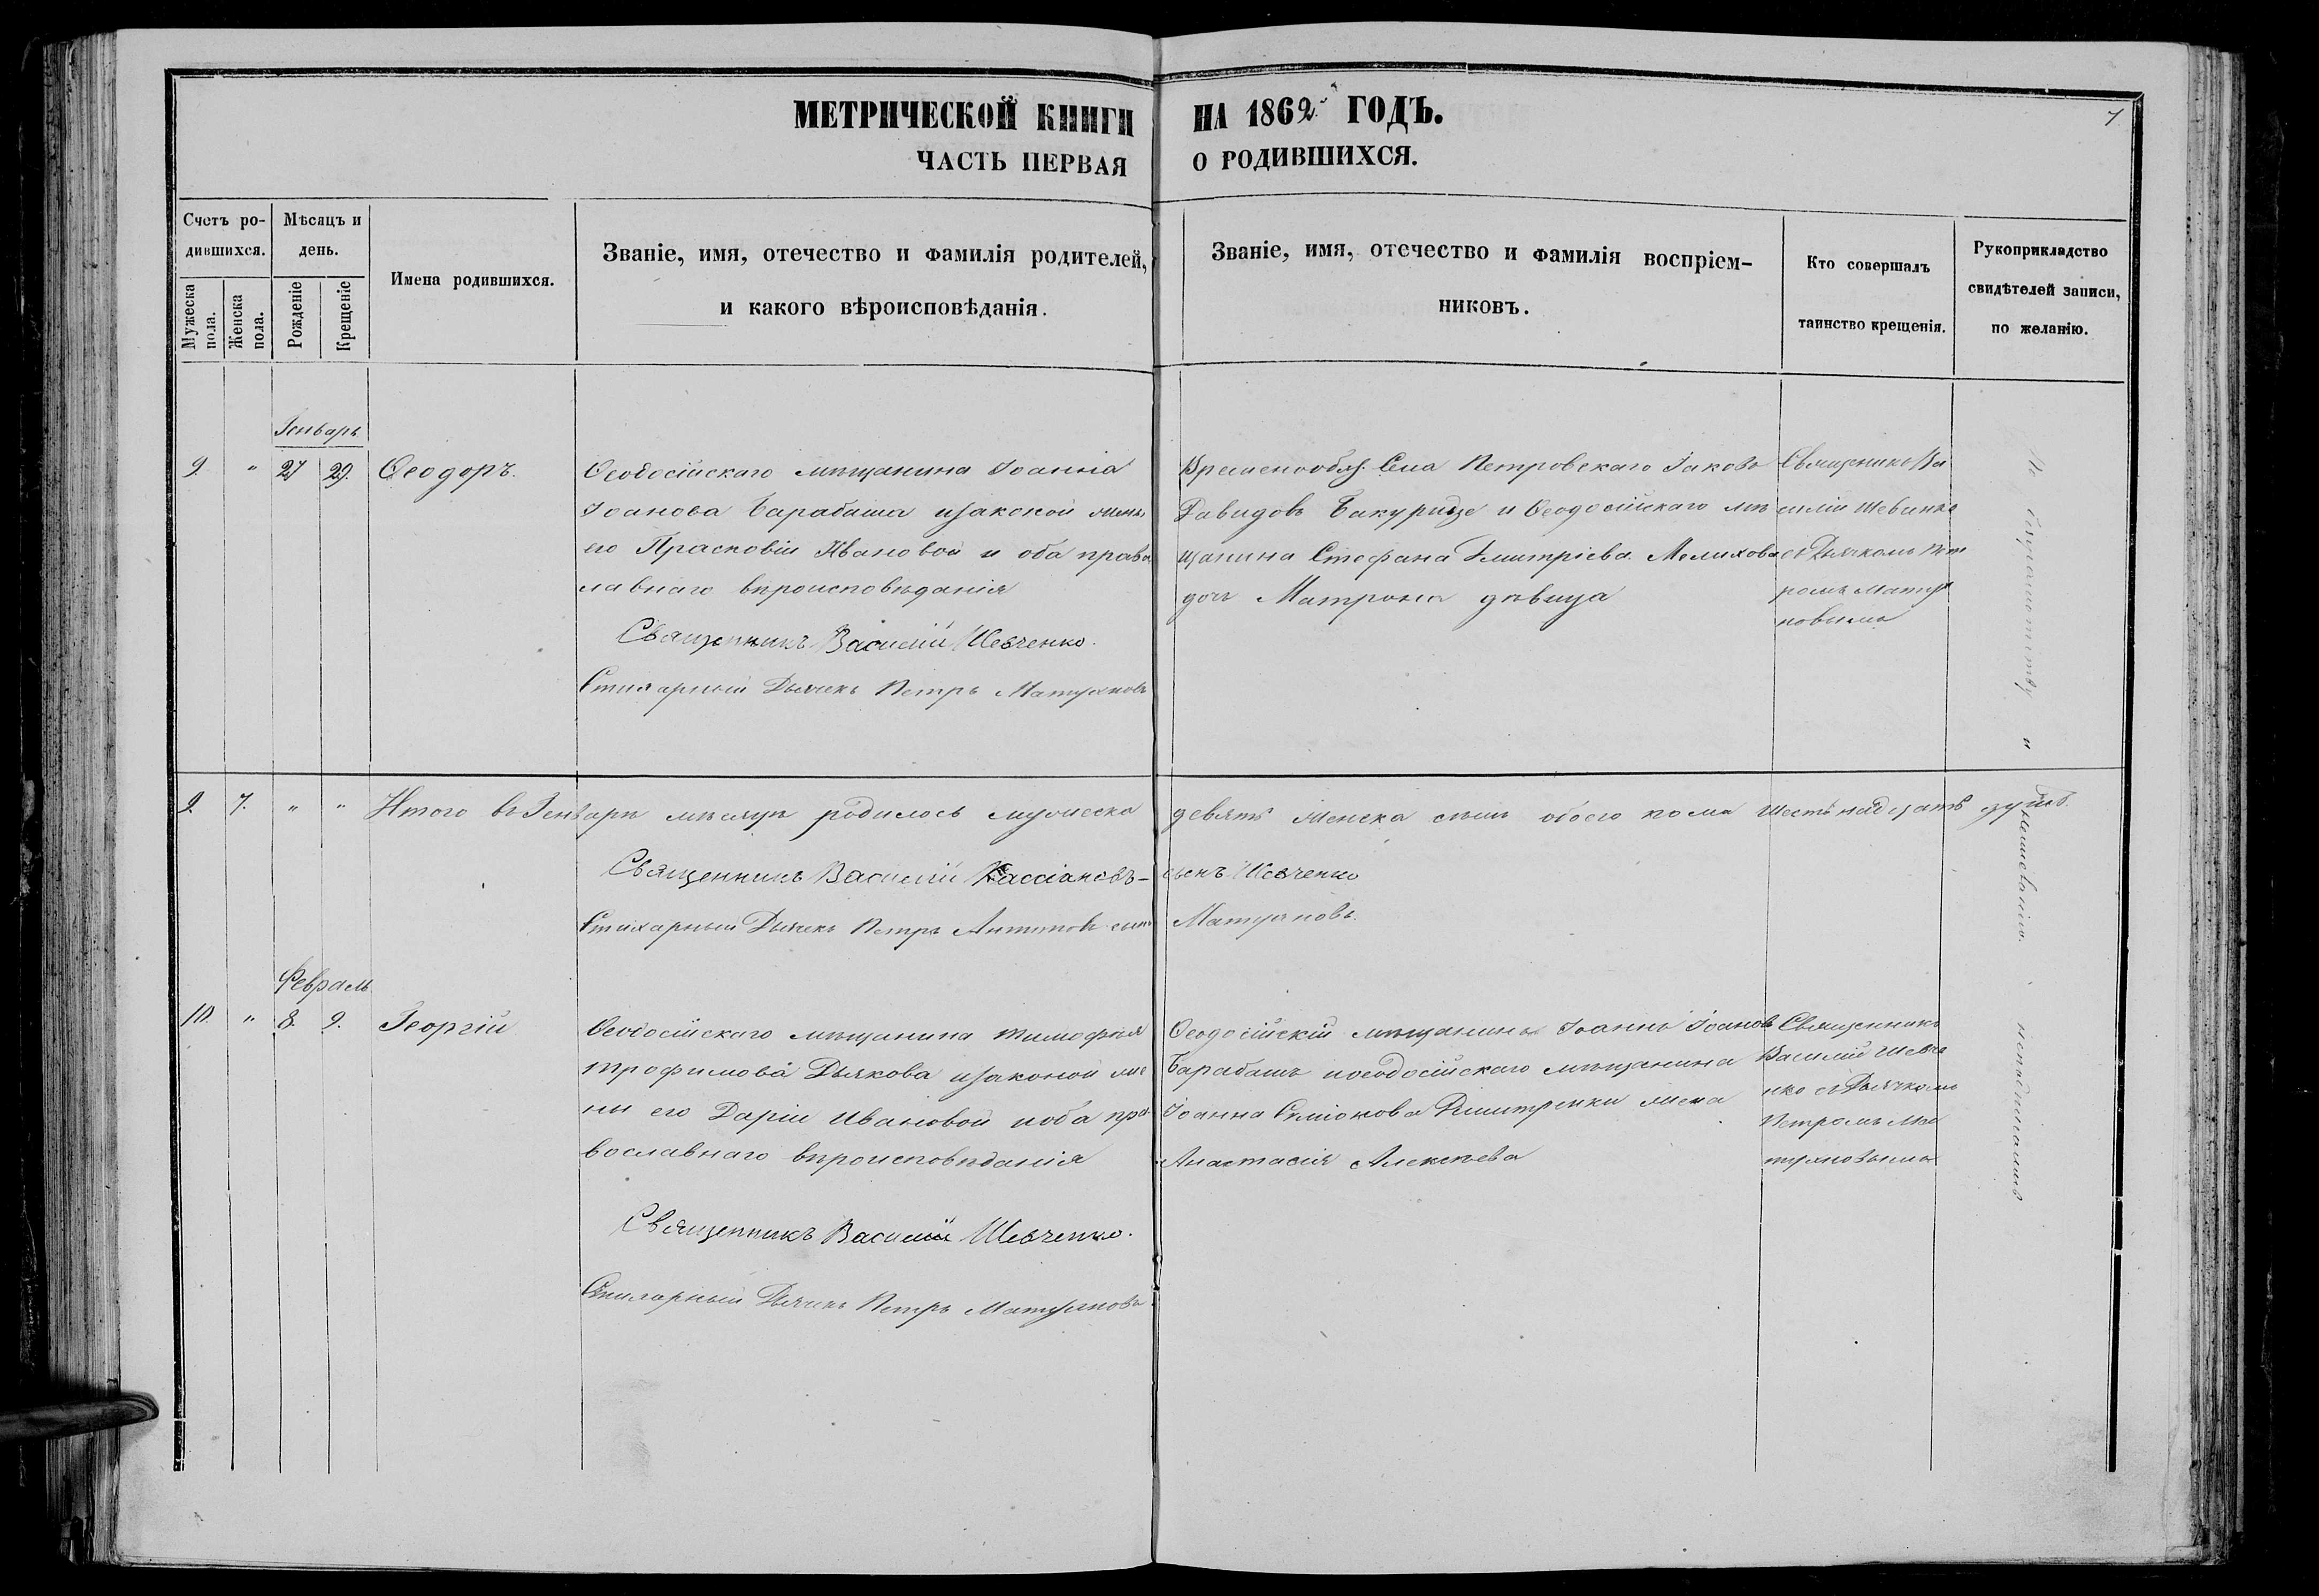 МЕТРИЧЕСКОЙ КНИГИ НА 1862 ГОДЪ.
7
ЧАСТЬ ПЕРВАЯ О РОДИВШИХСЯ.
Счетъ ро-
дившихся.
Мужеска пола.
Женска пола.
Мѣсяцъ и
день.
Рожденіе
Крещеніе
Имена родившихся.
Званіе, имя, отечество и фамилія родителей,
и какого вѣроисповѣданія.
Званіе, имя, отечество и фамилія воспріем-
никовъ.
Кто совершалъ
таинство крещенія.
Рукоприкладство
свидѣтелей записи,
по желанію.
Генварь
9. " 27 29. Ѳеодоръ.
Ѳеодосійскаго мѣщанина Іоанна
Іоанова Барабаша изаконой жены
его Прасковіи Ивановой и оба право
славнаго вѣроисповѣданія
Священникъ Василій Шевченко.
Стихарный Дьячекъ Петръ Матуяновъ
Временнообяз. Села Петровскаго Іаковъ
Давидовъ Бакуридзе и Ѳеодосійскаго мѣ
щанина Стефана Дмитріева Мелихова
дочь Матрона дѣвица
Священикъ Ва
силій Шевченко
съ Дьячкомъ Пет
ромъ Матуя
новымъ
9. 7. " " Итого въ Генварѣ мѣсяцѣ родилось мужеска девять женска семь обоего пола шестьнадцать душъ.
Священникъ Василій Кассіановъ- сынъ Шевченко
Стихарный Дьячекъ Петръ Антоновъ сынъ Матуяновъ.
Февраль
10. " 8. 9. Георгій
Ѳеодосійскаго мѣщанина Тимофея
Трофимова Дьякова изаконой же
ны его Даріи Ивановой иоба пра
вославнаго вѣроисповѣданія
Священникъ Василій Шевченко.
Стихарный Дьячекъ Петръ Матуяновъ.
Ѳеодосійскій мѣщанинъ Іоаннъ Іоановъ
Барабашъ иѳеодосійскаго мѣщанина
Іоанна Симіонова Дмитренки жена
Анастасія Алексѣева
Священникъ
Василій Шевче
нко съ Дьячкомъ
Петромъ Ма
туяновымъ
По безграмотству и нежеланію неподписались